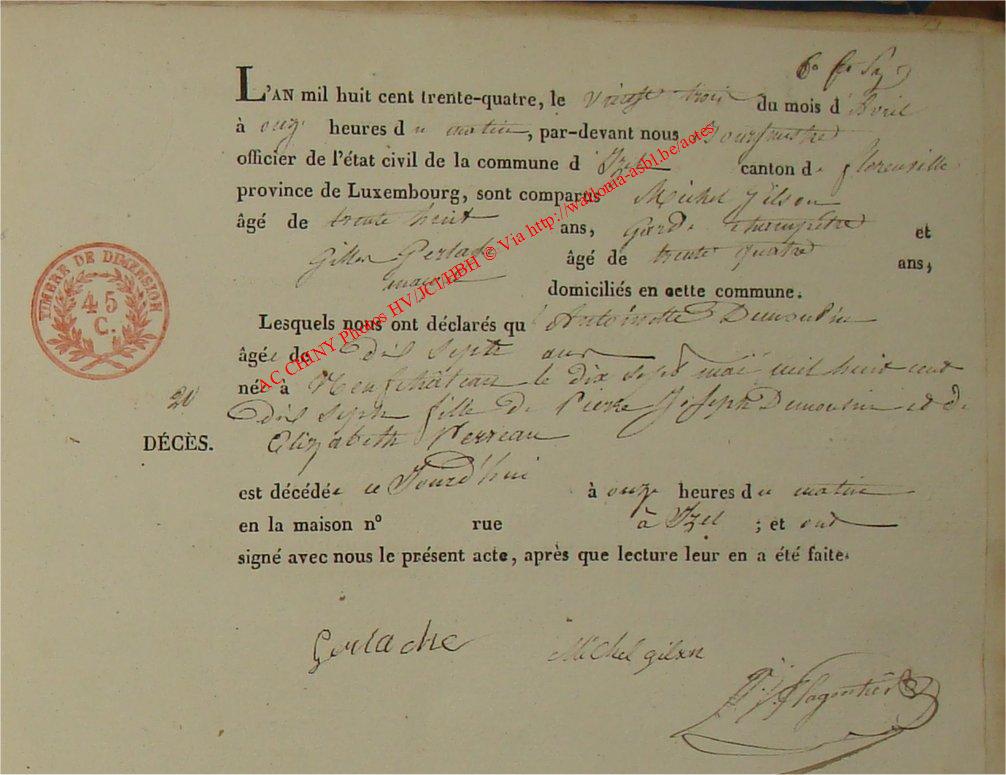 L'AN mil huit cent trente-quatre, le vingt trois du mois d'avril
à onze heures du matin, par-devant nous Bourgmestre
officier de l'état civil de la commune d'Izel canton de florenville
province de Luxembourg, sont comparus Michel Gilson
âgé de trente huit ans, garde champêtre et
Gilles Gerlache âgé de trente quatre ans,
domiciliés en cette commune.
Lesquels nous ont déclarés qu'Antoinette Dumoulin
âgée de dix septh ans
née à Neufchâteau le dix sept mai mil huit cent
dix septh fille de Pierre Joseph Dumoulin et d'
Elizabeth Perreau
est décédée ce Jourd'hui à onze heures du matin
en la maison nº rue à Izel ; et ont
signé avec nous le présent acte, après que lecture leur en a été faite.
20
DÉCÈS.
TIMBRE DE DIMENSION
45
C.
AC CHINY Photos HV/JCT/HBH © Via http://wallonia-asbl.be/actes
Gerlache
Michel gilson